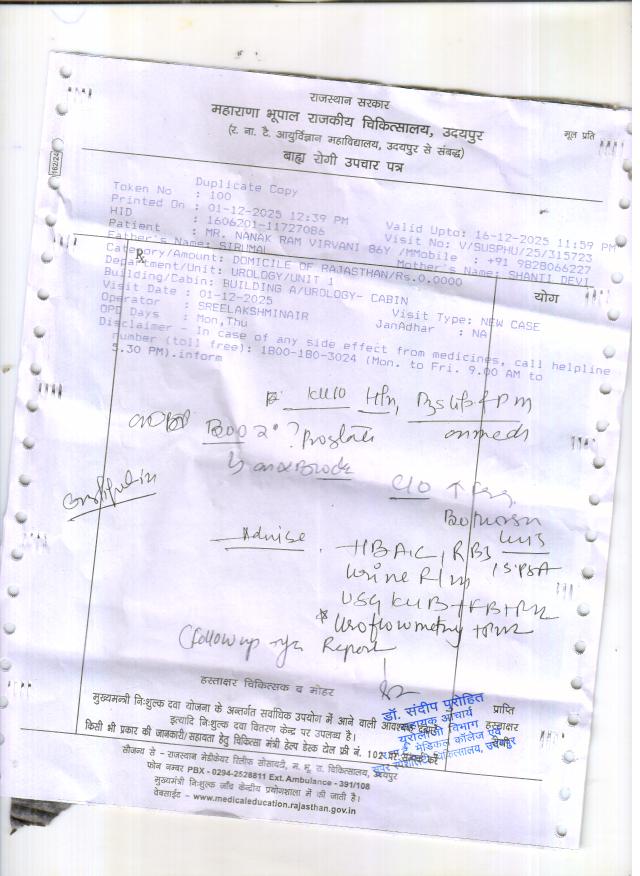 राजस्थान सरकार
महाराणा भूपाल राजकीय चिकित्सालय, उदयपुर
(र. ना. टै. आयुर्विज्ञान महाविद्यालय, उदयपुर से संबद्ध)
मूल प्रति
बाह्य रोगी उपचार पत्र
162/24
Duplicate Copy
Token No : 100
Printed On : 01-12-2025 12:39 PM Valid Upto: 16-12-2025 11:59 PM
HID : 1606201-11727086 Visit No: V/SUSPHU/25/315723
Patient : MR. NANAK RAM VIRVANI 86Y /M Mobile : +91 9828066227
Father's Name: SIRUMAL Mother's Name: SHANTI DEVI
Category/Amount: DOMICILE OF RAJASTHAN/Rs.0.0000
Department/Unit: UROLOGY/UNIT 1
योग
Building/Cabin: BUILDING A/UROLOGY- CABIN
Visit Date : 01-12-2025 Visit Type: NEW CASE
Operator : SREELAKSHMINAIR JanAdhar : NA
OPD Days : Mon,Thu
Disclaimer - In case of any side effect from medicines, call helpline
number (toll free): 1800-180-3024 (Mon. to Fri. 9.00 AM to
5.30 PM).inform
K/C/O HTN,
on meds
BOO 2° ? Prostate
C/O ↑
Advise HBA1C, RBS
Urine R/M S.PSA
USG KUB + FB + PVR
* Uroflowmetry + PVR
(Follow up Report
हस्ताक्षर चिकित्सक व मोहर
डॉ. संदीप पुरोहित
सहायक आचार्य
यूरोलोजी विभाग
प्राप्ति
हस्ताक्षर
मुख्यमन्त्री निःशुल्क दवा योजना के अन्तर्गत सर्वाधिक उपयोग में आने वाली आवश्यक
इत्यादि निःशुल्क दवा वितरण केन्द्र पर उपलब्ध है।
किसी भी प्रकार की जानकारी/सहायता हेतु चिकित्सा मंत्री हेल्प डेस्क टोल फ्री नं. 102 पर सम्पर्क करें
सौजन्य से - राजस्थान मेडीकेयर रिलीफ सोसायटी, म. भू. रा. चिकित्सालय, उदयपुर
फोन नम्बर PBX - 0294-2528811 Ext. Ambulance - 391/108
मुख्यमंत्री निःशुल्क जाँच केन्द्रीय प्रयोगशाला में की जाती है।
वेबसाईट - www.medicaleducation.rajasthan.gov.in